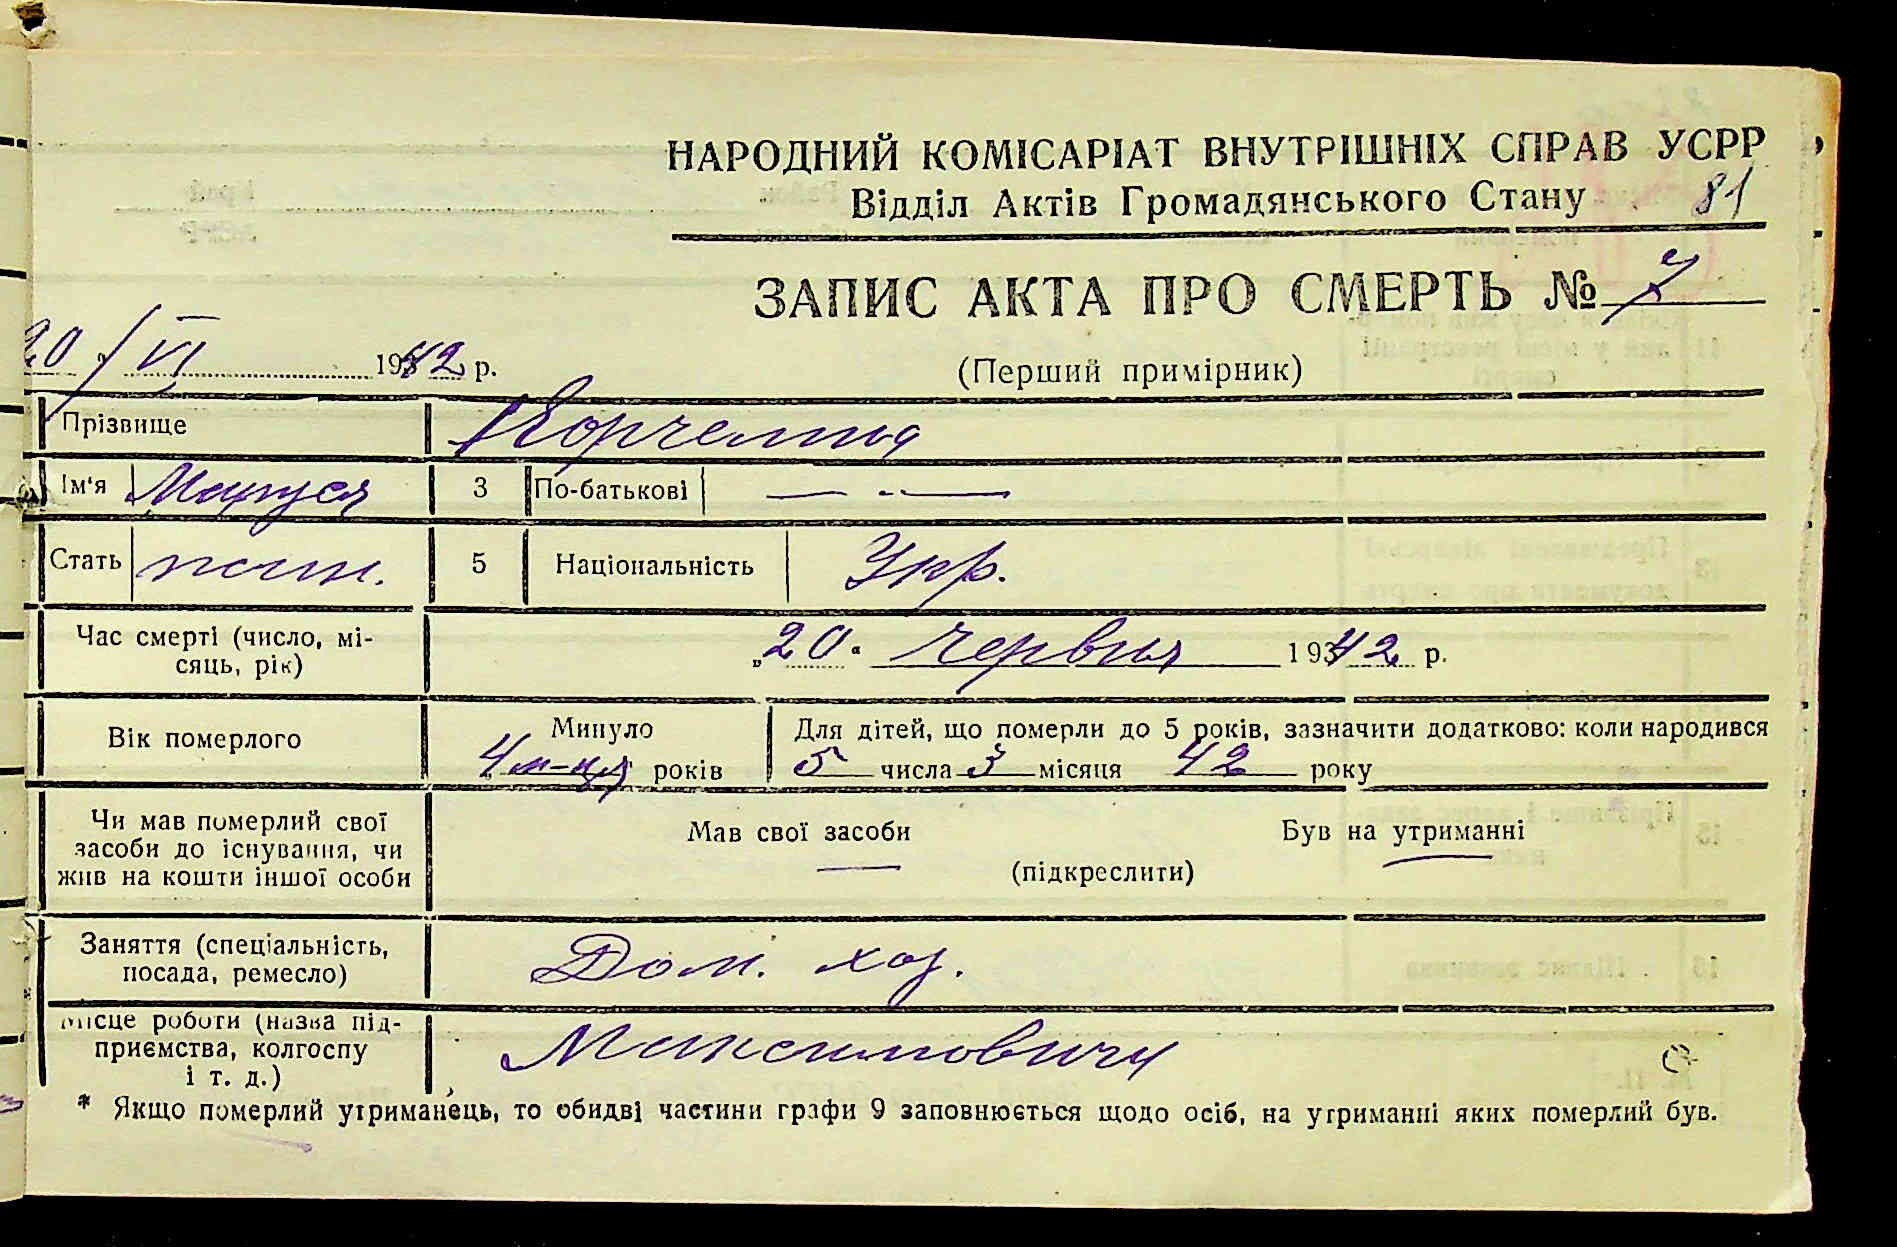 НАРОДНИЙ КОМІСАРІАТ ВНУТРІШНІХ СПРАВ УСРР
Відділ Актів Громадянського Стану 81
ЗАПИС АКТА ПРО СМЕРТЬ № 7
20 / VI 1942 р. (Перший примірник)
Прізвище
Ім'я Маруся 3 По-батькові — „ —
Стать жін. 5 Національність Укр.
Час смерті (число, мі-
сяць, рік)
„20" Червня 1942 р.
Вік померлого
Минуло
4 м-ця років
Для дітей, що померли до 5 років, зазначити додатково: коли народився
5 числа 3 місяця 42 року
Чи мав померлий свої
засоби до існування, чи
жив на кошти іншої особи
Мав свої засоби Був на утриманні
(підкреслити)
Заняття (спеціальність,
посада, ремесло)
Дом. хоз.
Місце роботи (назва під-
приємства, колгоспу
і т. д.)
Максимовичі
* Якщо померлий утриманець, то обидві частини графи 9 заповнюється щодо осіб, на утриманні яких померлий був.